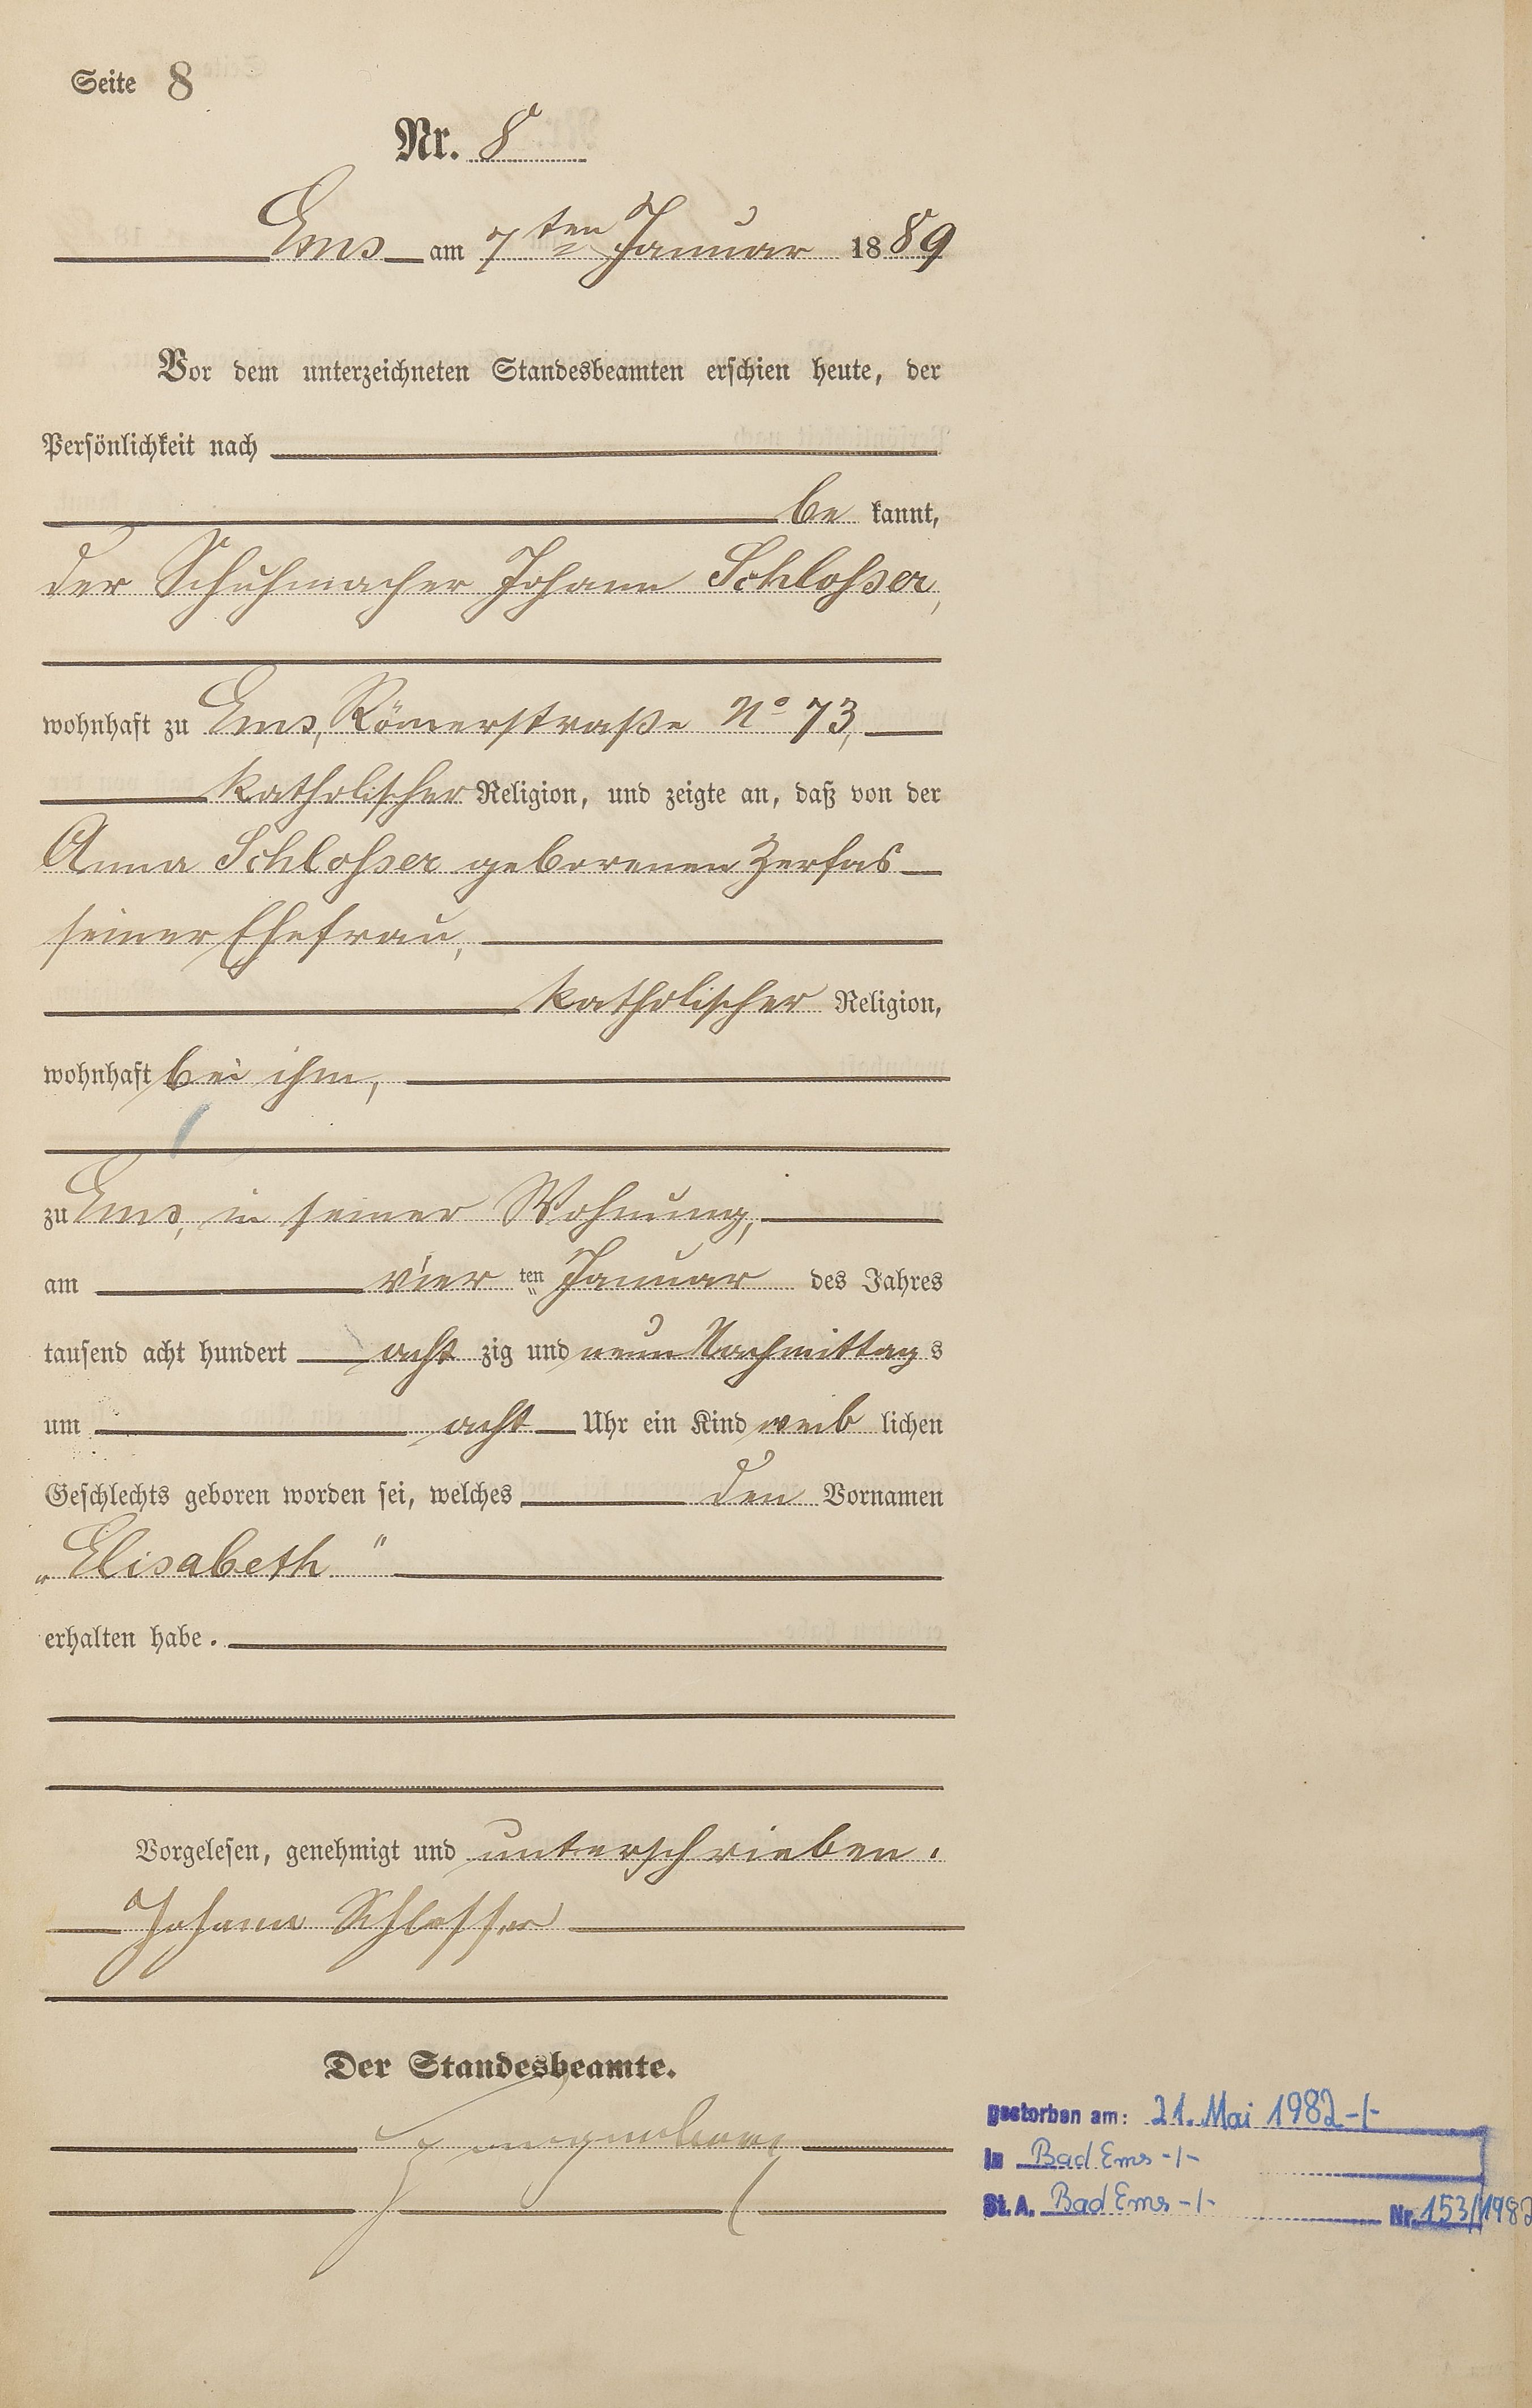 Seite 8
Nr. 8
Ems am 7ten Januar 1889
Vor dem unterzeichneten Standesbeamten erschien heute, der
Persönlichkeit nach
be kannt,
der Schuhmacher Johann Schlosser,
wohnhaft zu Ems, Römerstraße No 73,
katholischer Religion, und zeigte an, daß von der
Anna Schlosser geborenen Zerfas
seiner Ehefrau,
katholischer Religion,
wohnhaft bei ihm,
zu Ems, in seiner Wohnung,
am vier ten Januar des Jahres
tausend acht hundert acht zig und neun Nachmittag s
um acht Uhr ein Kind weib lichen
Geschlechts geboren worden sei, welches den Vornamen
„Elisabeth"
erhalten habe.
Vorgelesen, genehmigt und unterschrieben.
Johann Schlosser
Der Standesbeamte.
gestorben am: 21. Mai 1982 -/-
In Bad Ems -/-
St. A. Bad Ems -/- Nr. 153/1982